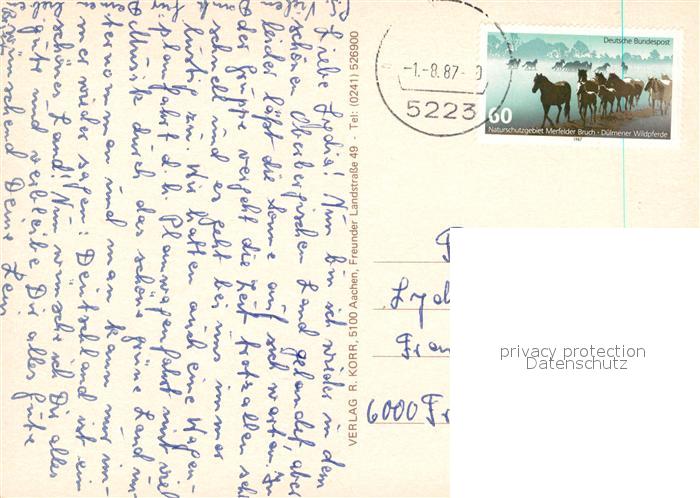 Liebe Lydia! Nun bin ich wieder in dem
schönen Oberbergischen Land gelandet, aber
leider läßt die Sonne auf sich warten. In
der Gruppe vergeht die Zeit trotz allem sehr
schnell und es geht bei uns immer
lustig zu. Wir hatten auch eine Wagen-
planfahrt d.h. Planwagenfahrt mit viel
Musik durch das schöne grüne Land un-
ternommen und man kann nur im-
mer wieder sagen: Deutschland ist ein
schönes Land! Nun wünsche ich Dir alles
gute und verbleibe Dir alles Gute
wünschend Deine
VERLAG R. KORR, 5100 Aachen, Freunder Landstraße 49 - Tel: (0241) 526900
-1.-8.87-
5223
Deutsche Bundespost
60
Naturschutzgebiet Merfelder Bruch · Dülmener Wildpferde
1987
Lyd
Fran
6000 Fr
privacy protection
Datenschutz